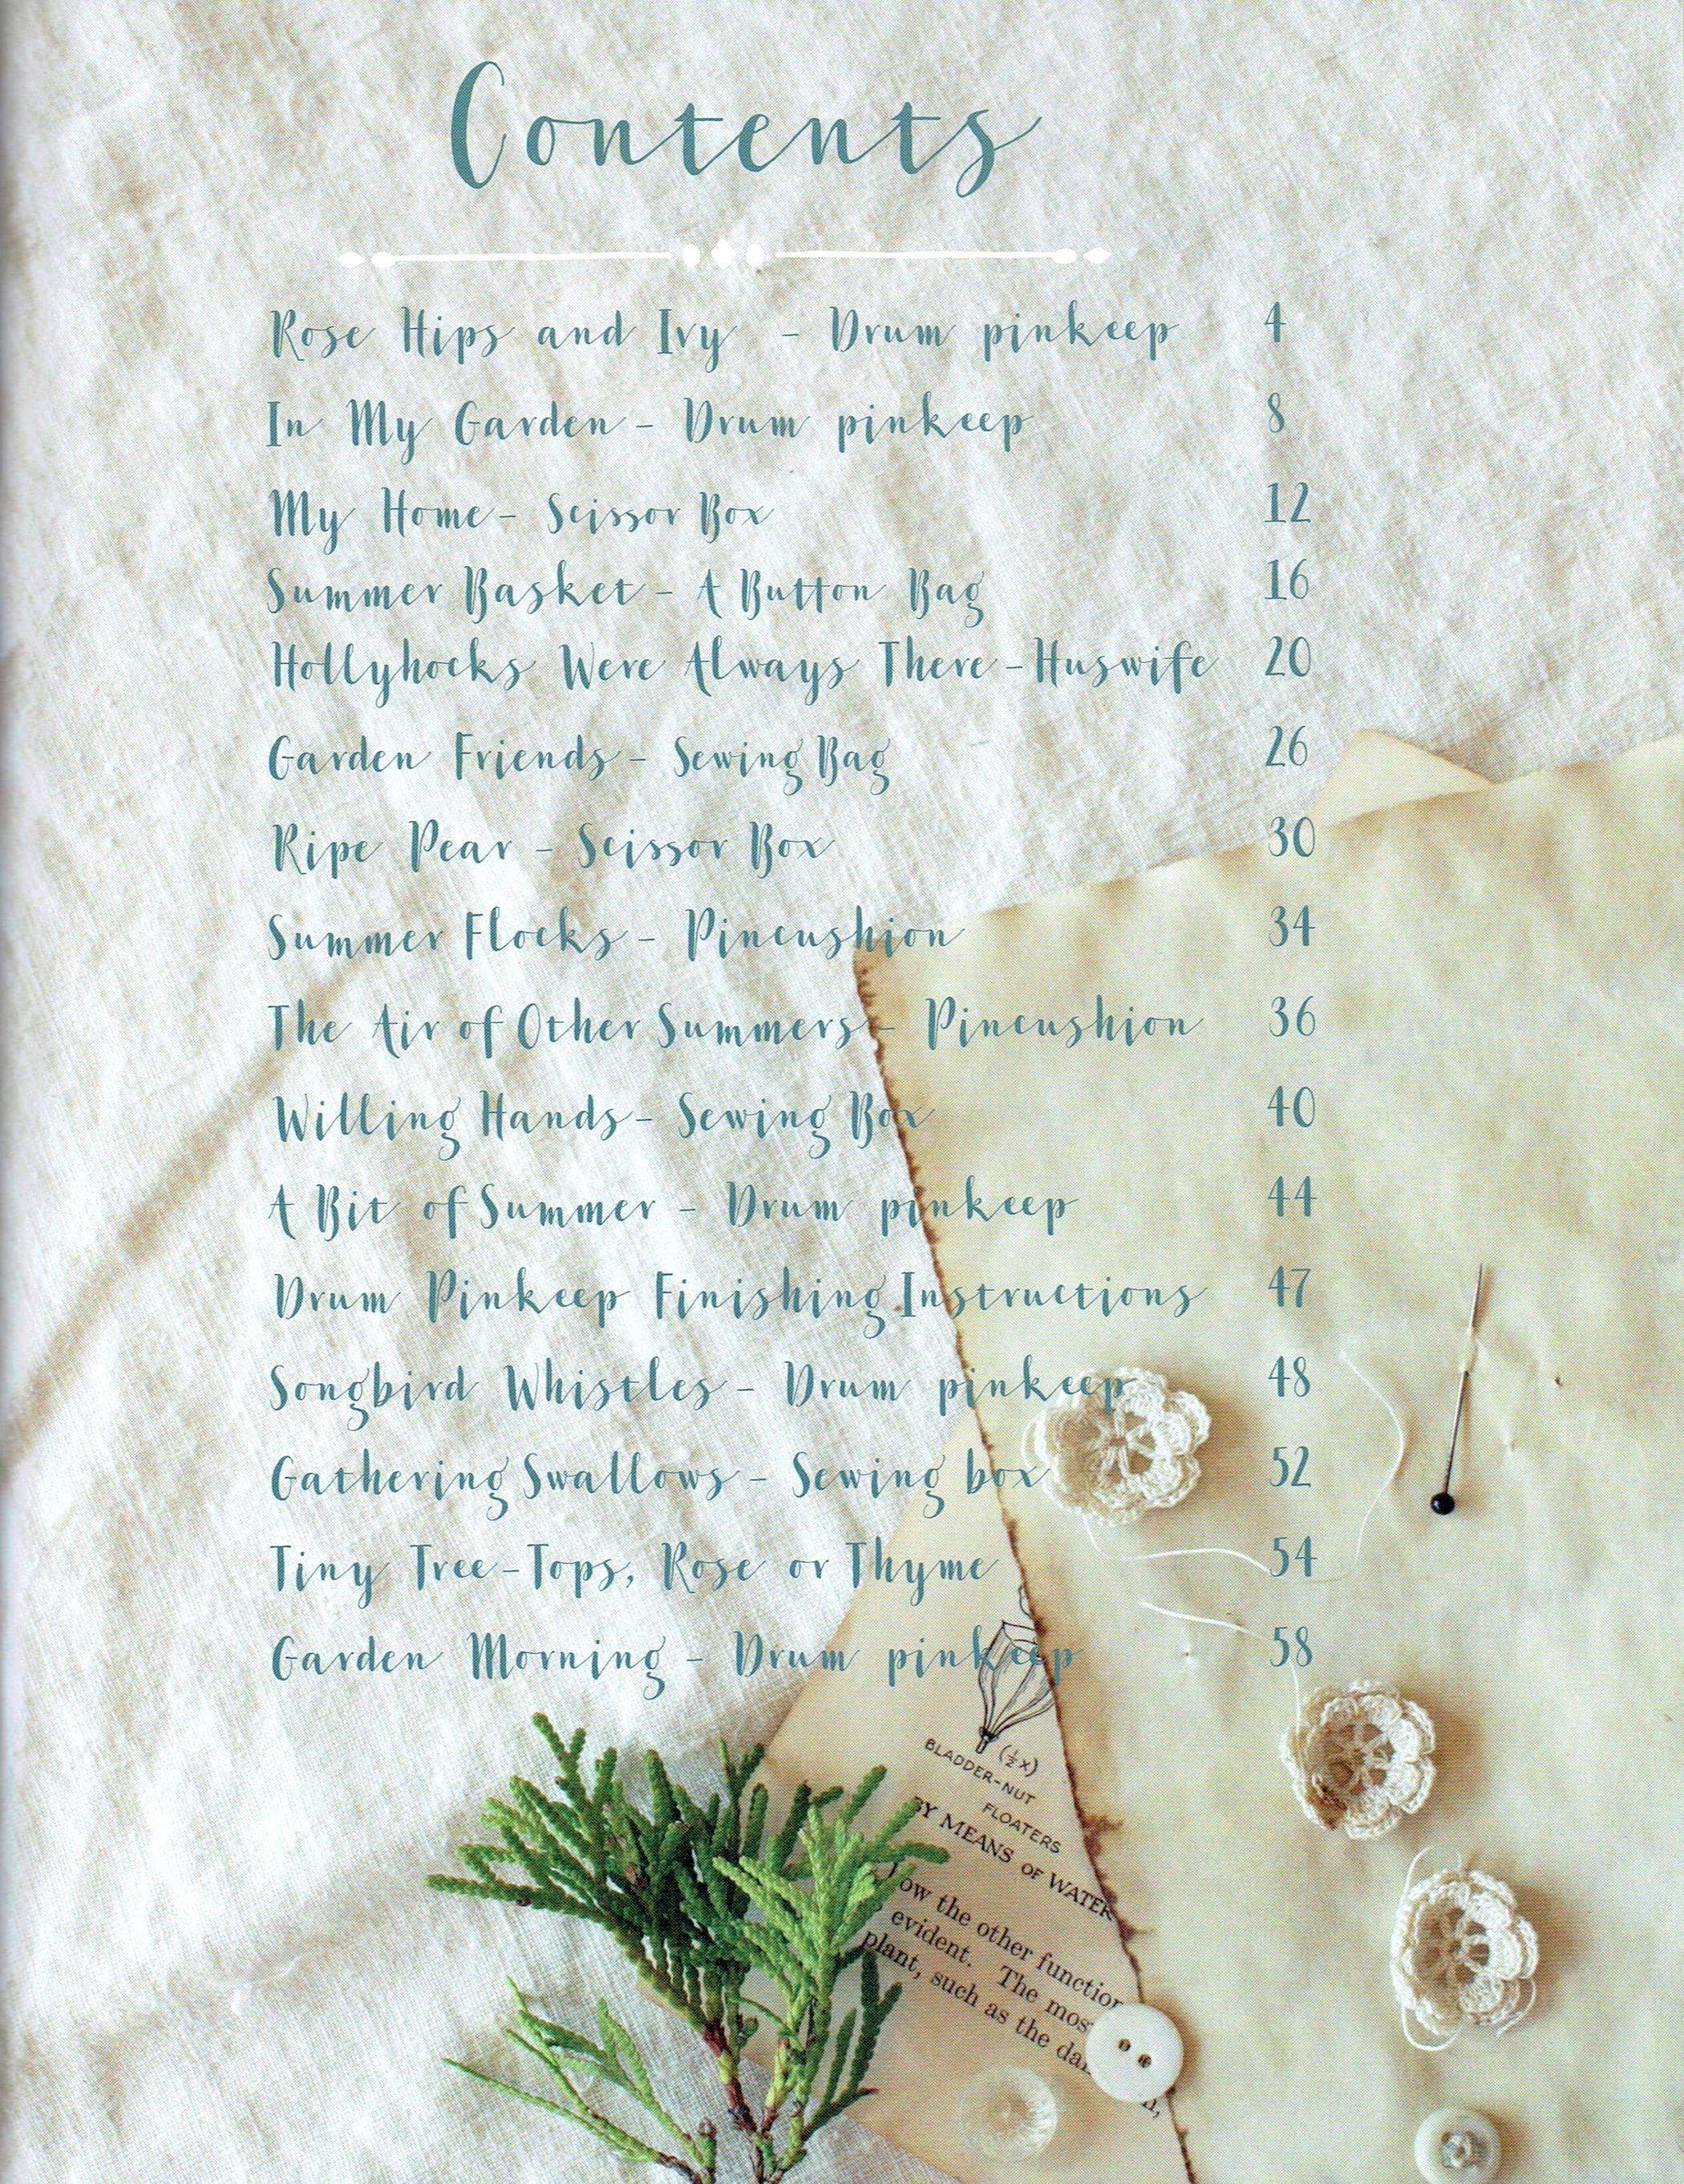 Contents
Rose Hips and Ivy - Drum pinkeep 4
In My Garden - Drum pinkeep 8
My Home - Scissor Box 12
Summer Basket - A Button Bag 16
Hollyhocks Were Always There - Huswife 20
Garden Friends - Sewing Bag 26
Ripe Pear - Scissor Box 30
Summer Flocks - Pincushion 34
The Air of Other Summers - Pincushion 36
Willing Hands - Sewing Box 40
A Bit of Summer - Drum pinkeep 44
Drum Pinkeep Finishing Instructions 47
Songbird Whistles - Drum pinkeep 48
Gathering Swallows - Sewing box 52
Tiny Tree-Tops, Rose or Thyme 54
Garden Morning - Drum pinkeep 58
(½x)
BLADDER-NUT
FLOATERS
BY MEANS OF WATER
the other function
evident. The
plant, such as the